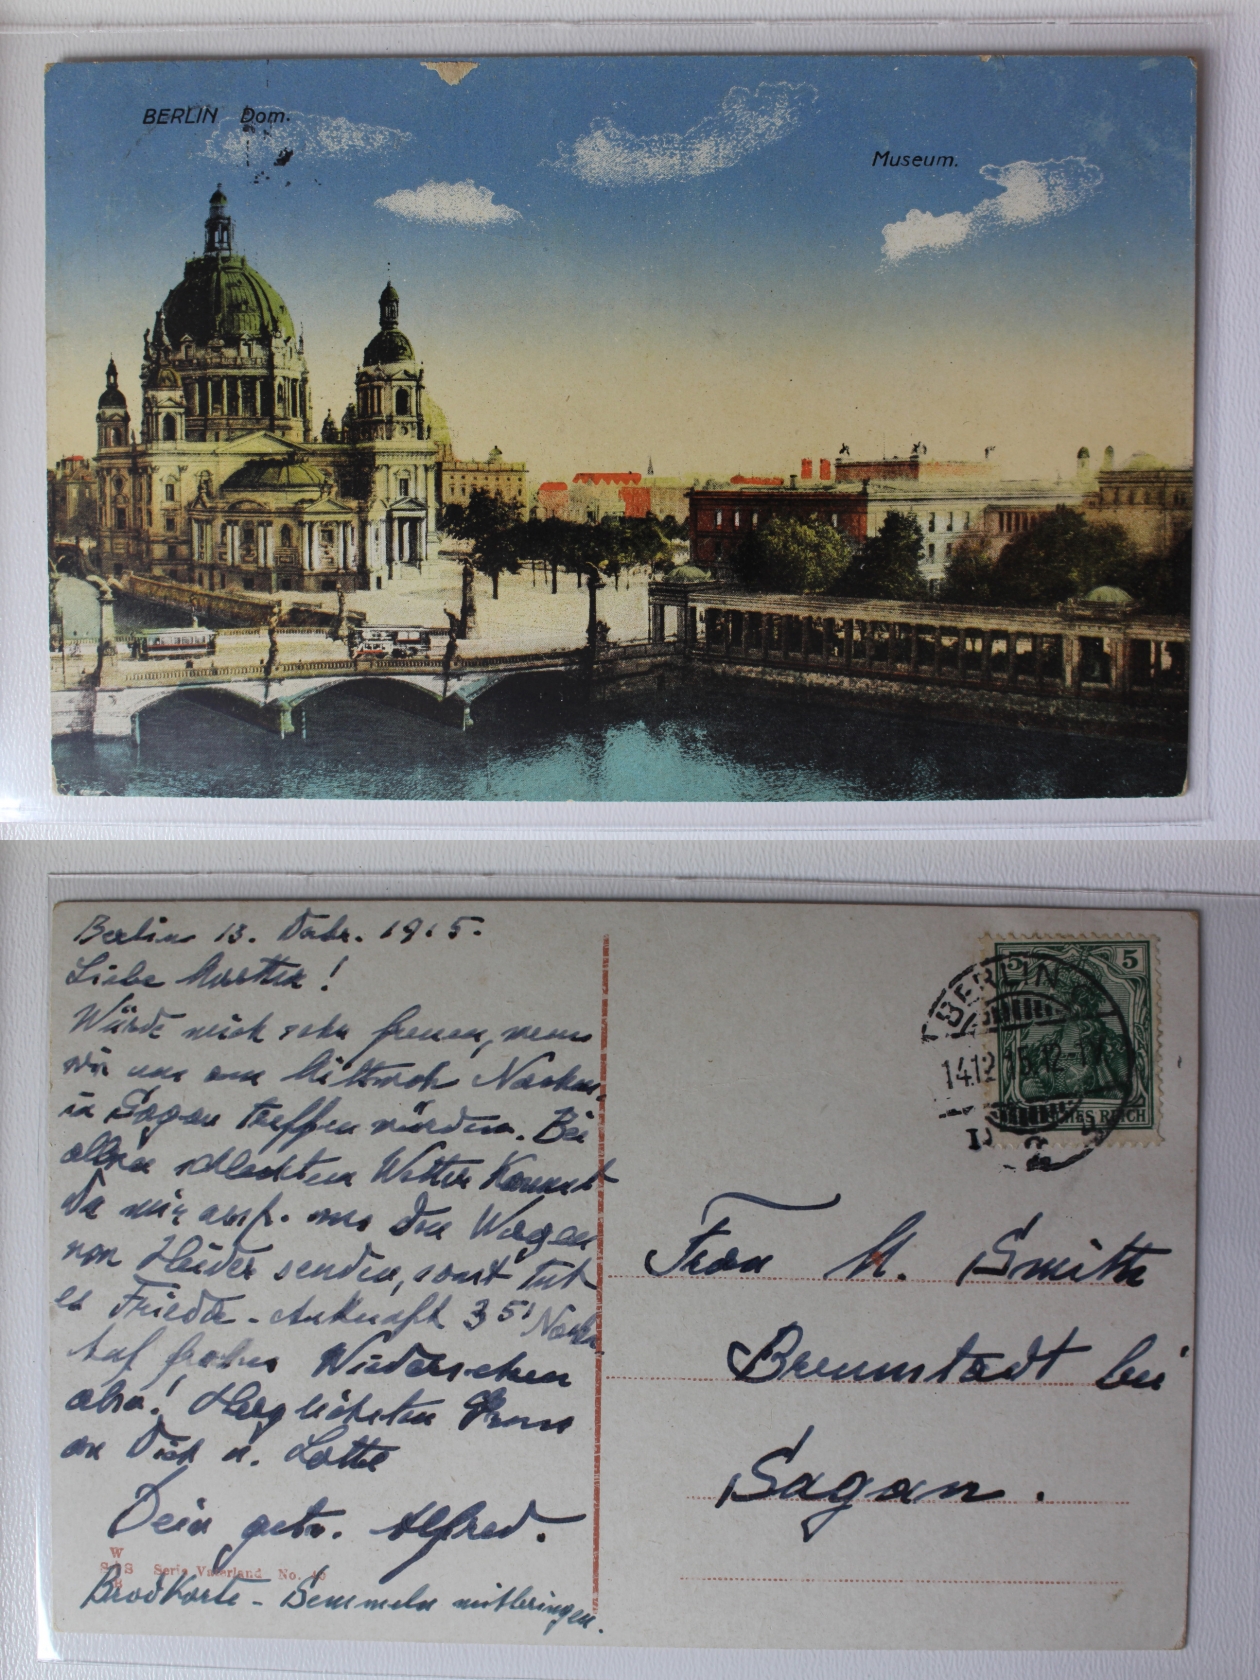 BERLIN Dom.
Museum.
Berlin 13. Dzbr. 1915.
Liebe Martha!
Würde mich sehr freuen, wenn
wir uns am Mittwoch Nachm.
in Sagan treffen würden. Bei
allzu schlechtem Wetter kannst
Du mir ausf. uns den Wagen
von Heider senden, sonst tut
es Friede. Ankunft 3 51 Nachm
Auf frohes Wiedersehen
also! Herzlichsten Gruss
an Dich u. Lotte
Dein getr. Alfred.
W
S S B Serie Vaterland No.
Brodkarte - Semmeln mitbringen.
5 5
BERLIN
14.12 15.12-1
DEUTSCHES REICH
Frau M. Smith
Brennstadt bei
Sagan.